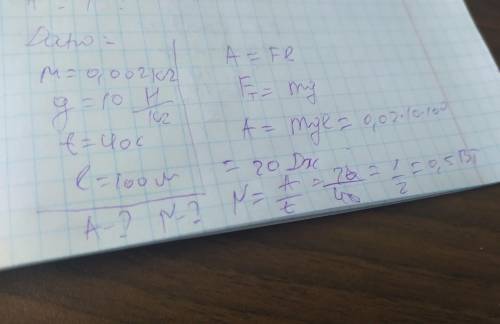 Дано =
m = 0,002 кг
g = 10 Н/кг
t = 40с
l = 100м
A - ? N - ?
A = Fl
Fт = mg
A = mgl = 0,02·10·100
= 20 Дж
N = A/t = 20/40 = 1/2 = 0,5 Вт